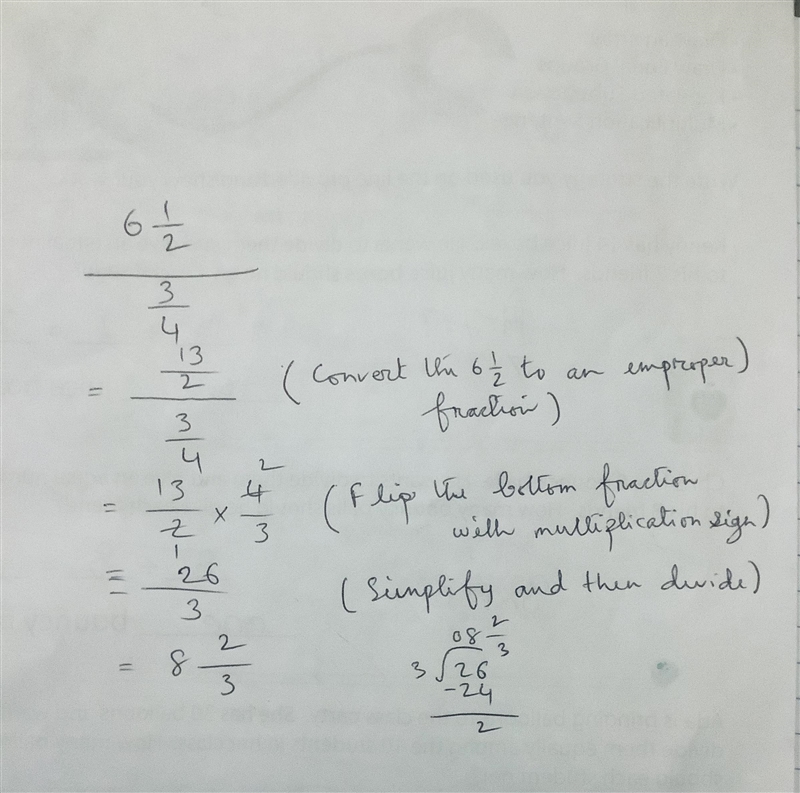 6 1/2
3/4
= 13/2 / 3/4 (Convert the 6 1/2 to an emproper)
fraction)
= 13/2 x 4/3 (Flip the bottom fraction
2
1
with multiplication sign)
= 26/3 (Simplify and then divide)
= 8 2/3
08 2/3
3 √26
-24
2